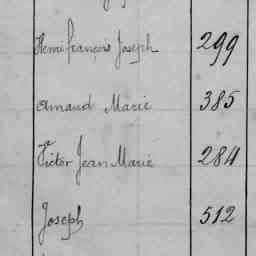 Henri françois Joseph 299
Amand Marie 385
Victor Jean Marie 284
Joseph 512